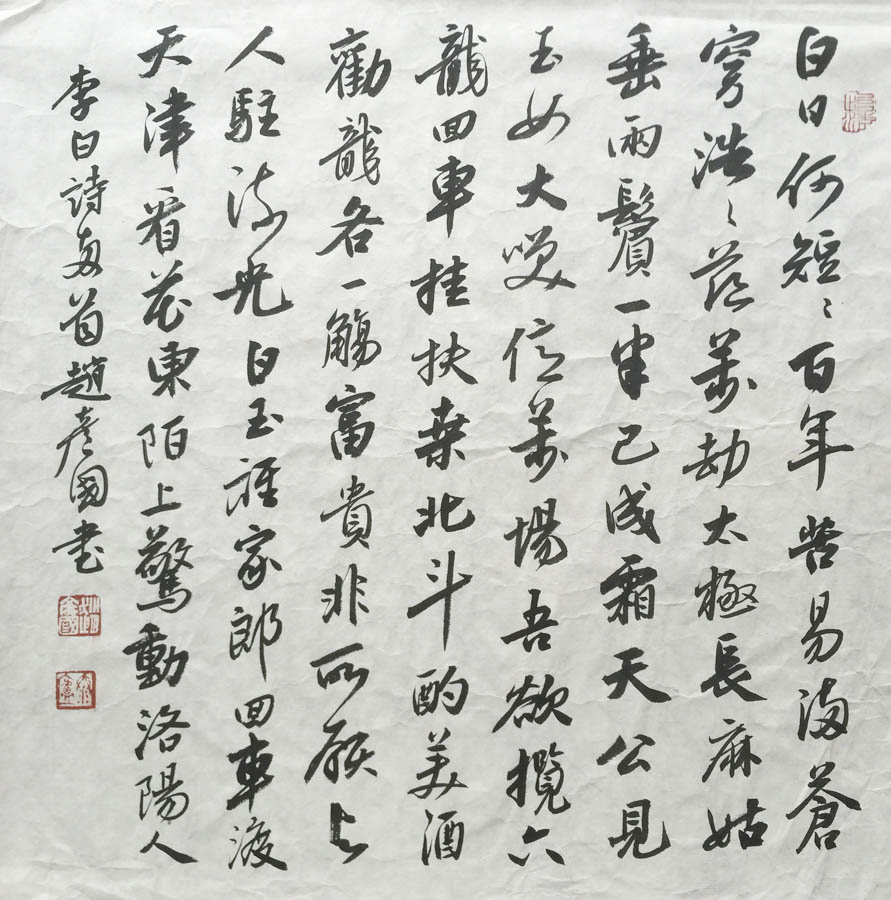 白日何短〻百年苦易満蒼
穹浩〻茫萬劫太極長麻姑
垂兩鬢一半已成霜天公見
玉女大笑億萬場吾欲攬六
龍回車挂扶桑北斗酌美酒
勸龍各一觴富貴非所願与
人駐流光白玉誰家郎回車渡
天津看花東陌上驚動洛陽人
李白詩两首趙彦國书